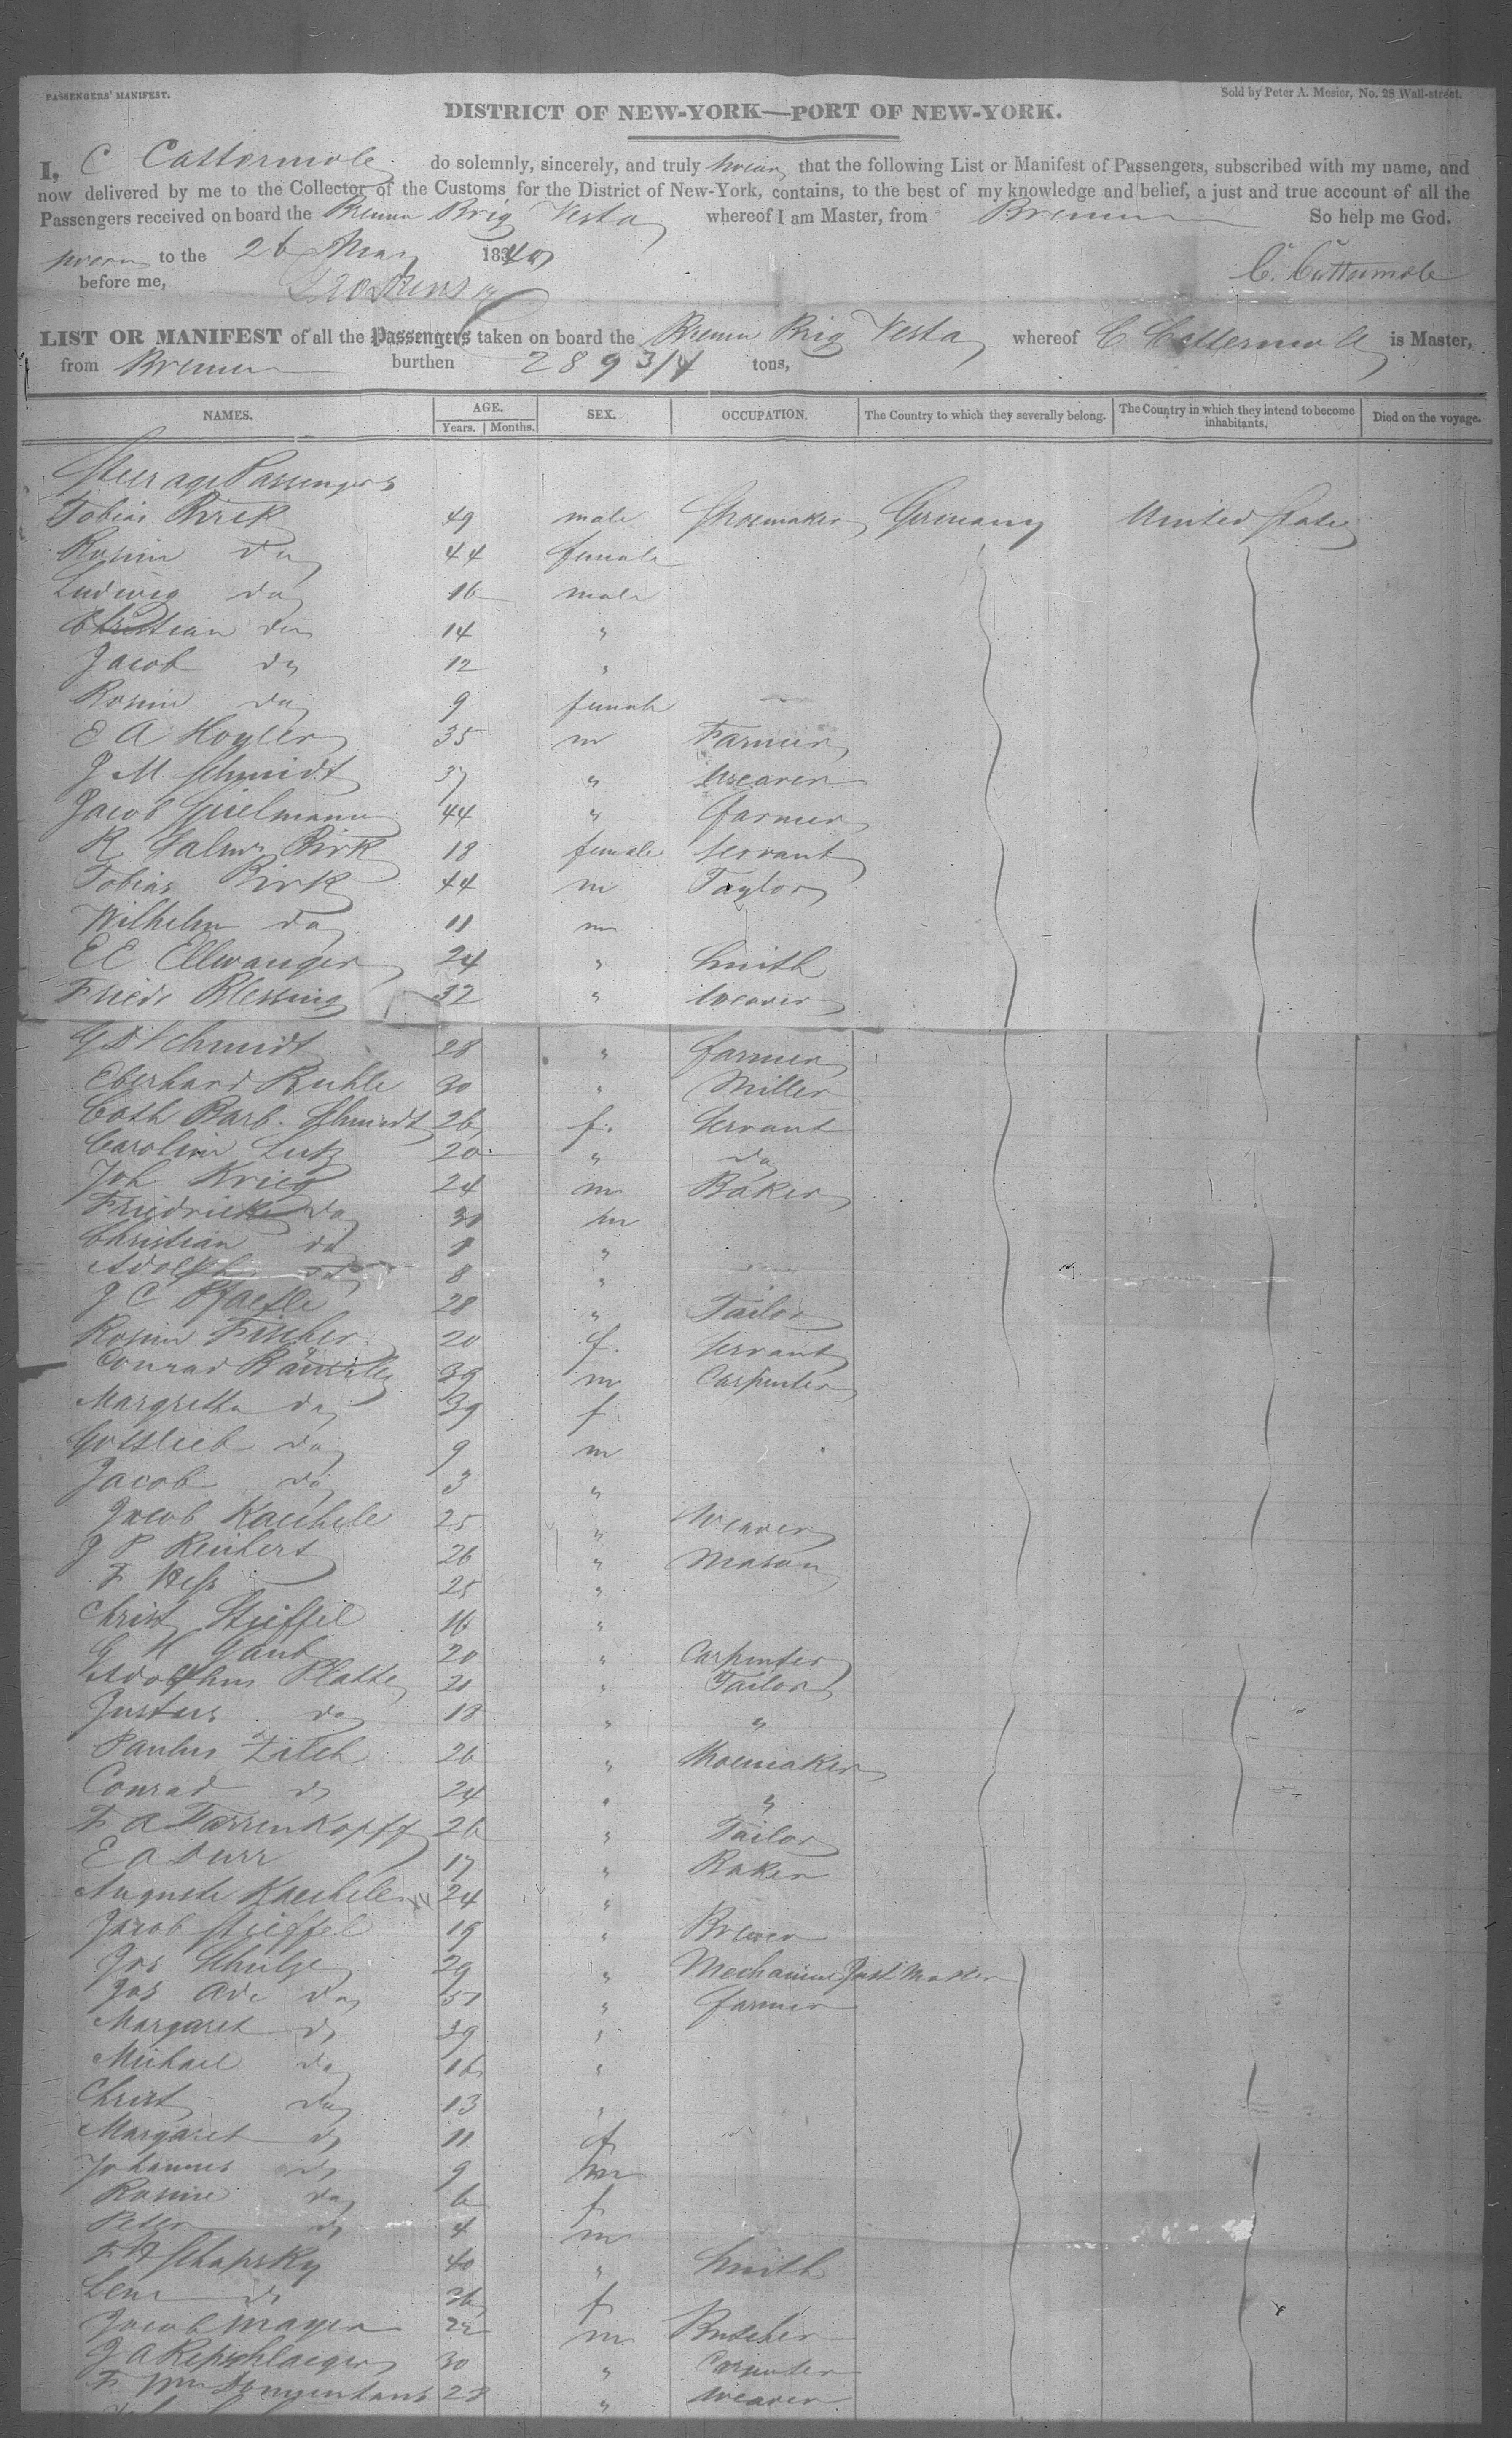 PASSENGERS' MANIFEST.
Sold by Peter A. Mesier, No. 28 Wall-street.
DISTRICT OF NEW-YORK—PORT OF NEW-YORK.
I, C Cattermole do solemnly, sincerely, and truly swear that the following List or Manifest of Passengers, subscribed with my name, and
now delivered by me to the Collector of the Customs for the District of New-York, contains, to the best of my knowledge and belief, a just and true account of all the
Passengers received on board the Bremen Brig Vesta whereof I am Master, from Bremen So help me God.
sworn to the 26 May 1840
before me, C. Cattermole
LIST OR MANIFEST of all the Passengers taken on board the Bremen Brig Vesta whereof C Cattermole is Master,
from Bremen burthen 289 3/4 tons,
NAMES. AGE. SEX. OCCUPATION. The Country to which they severally belong. The Country in which they intend to become inhabitants. Died on the voyage.
Years. Months.
Steerage Passengers
Tobias Birck 49 male Shoemaker Germany United States
Rosine do 44 female
Ludwig do 16 male
Christian do 14 "
Jacob do 12 "
Rosine do 9 female
E A Hoyler 35 m Farmer
J M Schmidt 37 " Weaver
Jacob 44 " farmer
R Birk 18 female Servant
Tobias Birk 44 m Taylor
Wilhelm do 11 m
E E Ellwanger 24 " Smith
Friedr Blessing 32 " Weaver
G D Schmidt 28 " farmer
Eberhard Ruhle 30 " Miller
Cath Barb. Schmidt 26 f. Servant
Caroline Lutz 20 " do
Joh Krieg 24 m Baker
Friedricke do 30 m
Christian do "
Adolph do 8 "
J C Pfaefle 28 " Tailor
Rosine Fischer 20 f. Servant
Conrad 39 m Carpenter
Margretha do 39 f
Gottlieb do 9 m
Jacob do 3 "
Jacob Kaechele 25 " Weaver
J P Reichert 26 " Mason
F Hess 25 "
Christ Stieffel 16 "
G H Gaub 20 " Carpenter
Adolphus Platte 21 " Tailor
Justus do 18 " "
Paulus Zilch 26 " Shoemaker
Conrad do 24 " "
F A Farrenkopff 26 " Tailor
E A Durr 17 " Baker
Auguste Kaechele 24 "
Jacob Stieffel 19 " Brewer
Jos Schulze 29 " Mechanic
Jos Ade do 51 " farmer
Margaret do 39 "
Michael do 16 "
Christ do 13 "
Margaret do 11 f
Johannes do 9 m
Rosine do 6 f
Peter do 4 m
F A Schapsky 40 " Smith
Lene do 36 f
Jacob Mayer 22 m Butcher
J A Repschlaeger 30 " Carpenter
F Wm 28 " Weaver